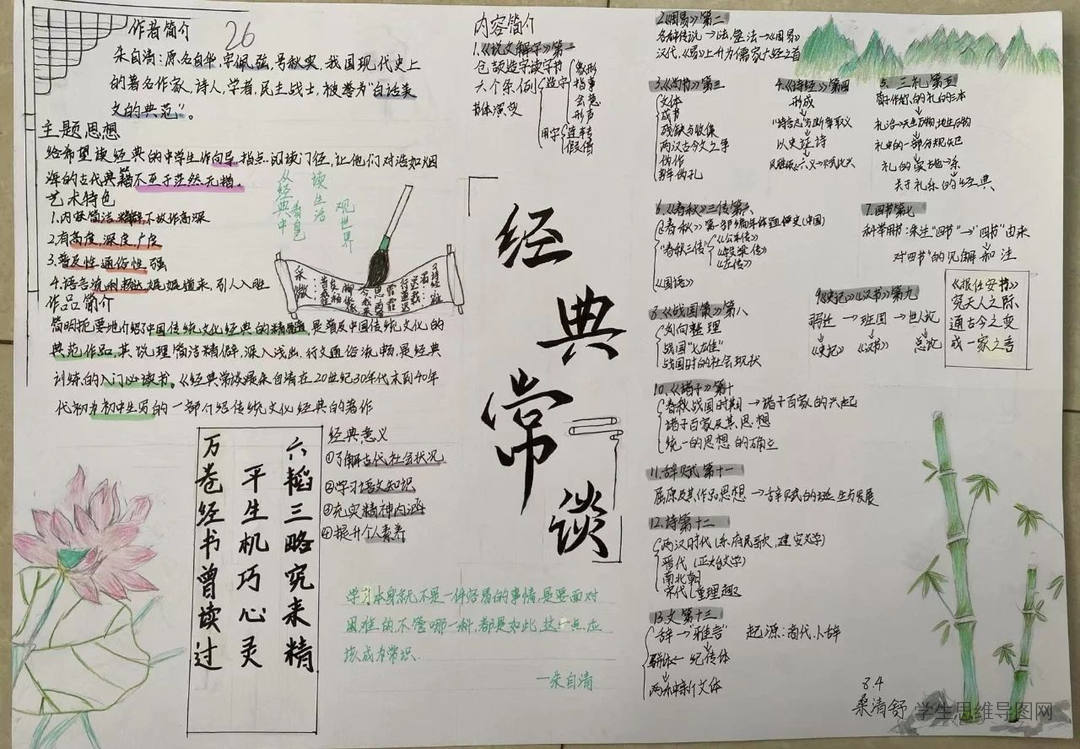 作者简介
26
朱自清:原名自华,字佩弦,号秋实,我国现代史上
的著名作家,诗人,学者,民主战士,被誉为"白话美
文的典范"。
主题思想
给希望读经典的中学生作向导,指点阅读门径,让他们对浩如烟
海的古代典籍不至于茫然无措。
艺术特色
1.内容简洁精辟不故作高深
2.有高度,深度,广度
3.普及性通俗性强
4.语言流利畅达娓娓道来,引人入胜
从经典中看自己
读生活
观世界
作品简介
简明扼要地介绍了中国传统文化经典的精髓,是普及中国传统文化的
典范作品,其说理简洁精辟,深入浅出,行文通俗流畅,是经典
训练的入门必读书。《经典常谈》是朱自清在20世纪30年代末到40年
代初为初中生写的一部介绍传统文化经典的著作
六韬三略究来精
平生机巧心灵
万卷经书曾读过
经典意义
①了解古代社会状况
②学习语文知识
③充实精神内涵
④提升个人素养
经典常谈
学习本身就不是一件容易的事情,是要面对
困难的不管哪一科,都是如此,这一点应
该成为常识.
—朱自清
内容简介
1.《说文解字》第一
仓颉造字读字书
六个条例
造字
象形
指事
会意
形声
用字
转注
假借
书体演变
2.《周易》第二
汉代,《易》上升为儒家六经之首
3.《尚书》第三
文体
成书
残缺与收集
两汉古今文之争
伪作
4.《诗经》第四
形成
以史证诗
5.三礼第五
关于礼乐的经典
6.《春秋》三传第六
《春秋》第一部编年体通史(中国)
"春秋三传"
《公羊传》
《谷梁传》
《左传》
《国语》
7.四书第七
科学用书:朱注"四书"→"四书"由来
对四书"的见解和注
8.《战国策》第八
刘向整理
战国"七雄"
战国时的社会现状
9.《史记》《汉书》第九
司迁→班固→
《史记》
《汉书》
总论
《报任安书》
究天人之际
通古今之变
成一家之言
10.《诸子》第十
春秋战国时期→诸子百家的兴起
诸子百家及其思想
统一的思想的确立
11.辞赋第十一
屈原及其作品思想→古辞赋的诞生与发展
12.诗第十二
两汉时代(乐府民歌,建安文学)
晋代(正始文学)
南北朝
宋代
重理趣
13.文第十三
辞→"雅言"
起源:商代卜辞
群体←纪传体
两新文体
8.4
桑清舒
学生思维导图网